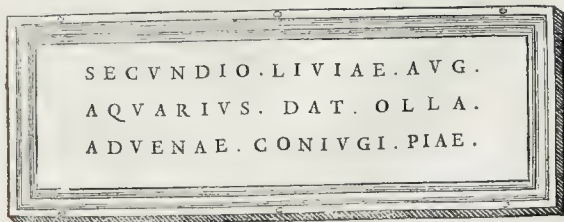 SECVNDIO.LIVIAE.AVG.
AQVARIVS. DAT. OLLA.
ADVENAE. CONIVGI. PIAE.